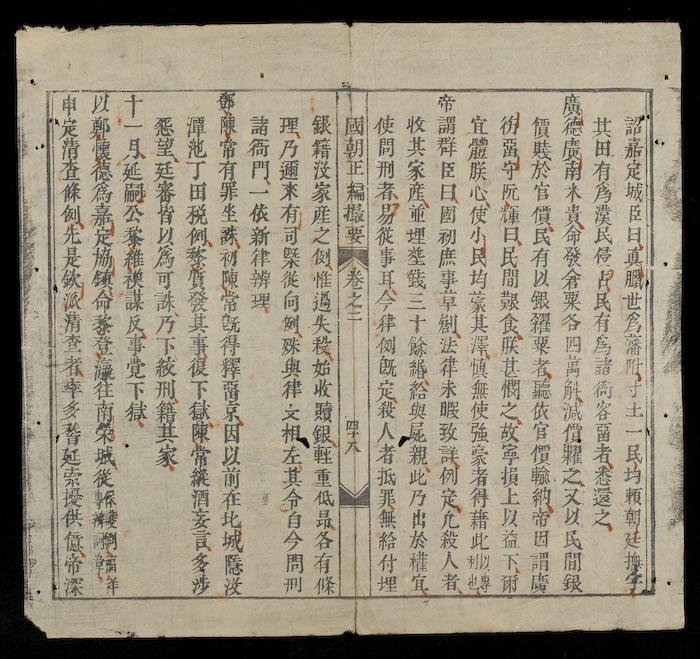 詔嘉定城臣曰真臘世爲藩附寸土一民均賴朝廷撫字
其田有爲漢民侵占民有爲諸衙容畱者悉還之
廣德廣南米貴命發倉粟各四萬斛減價糶之又以民間銀
價賤於官價民有以銀糴粟者聽依官價輸納帝因謂廣
德畱守阮輝曰民間艱食朕甚憫之故寧損上以益下爾
宜體朕心使小民均蒙其澤慎無使強豪者得藉此以專利也
帝謂群臣曰國初庶事草創法律未暇致詳例定凢殺人者
收其家産並埋塟錢三十餘緡給與屍親此乃出於權宜
使問刑者易從事耳今律例旣定殺人者抵罪無給付埋
國朝正編撮要 卷之二 四十八
銀籍沒家産之例惟過失殺始收贖銀輕重低昂各有條
理乃邇來有司槩從向例殊與律文相左其令自今問刑
諸衙門一依新律辨理
鄧陳常有罪坐誅初陳常旣得釋畱京因以前在北城隱沒
潭池丁田税例黎質發其事復下獄陳常縱酒妄言多涉
怨望廷審皆以爲可誅乃下絞刑籍其家
十一月延嗣公黎維㬙謀反事覺下獄
以鄭懷德爲嘉定協鎮命黎登瀛往南榮城從保護劉商洋專辨詞章
申定清查條例先是欽派清查者率多瞀延索擾供億帝深